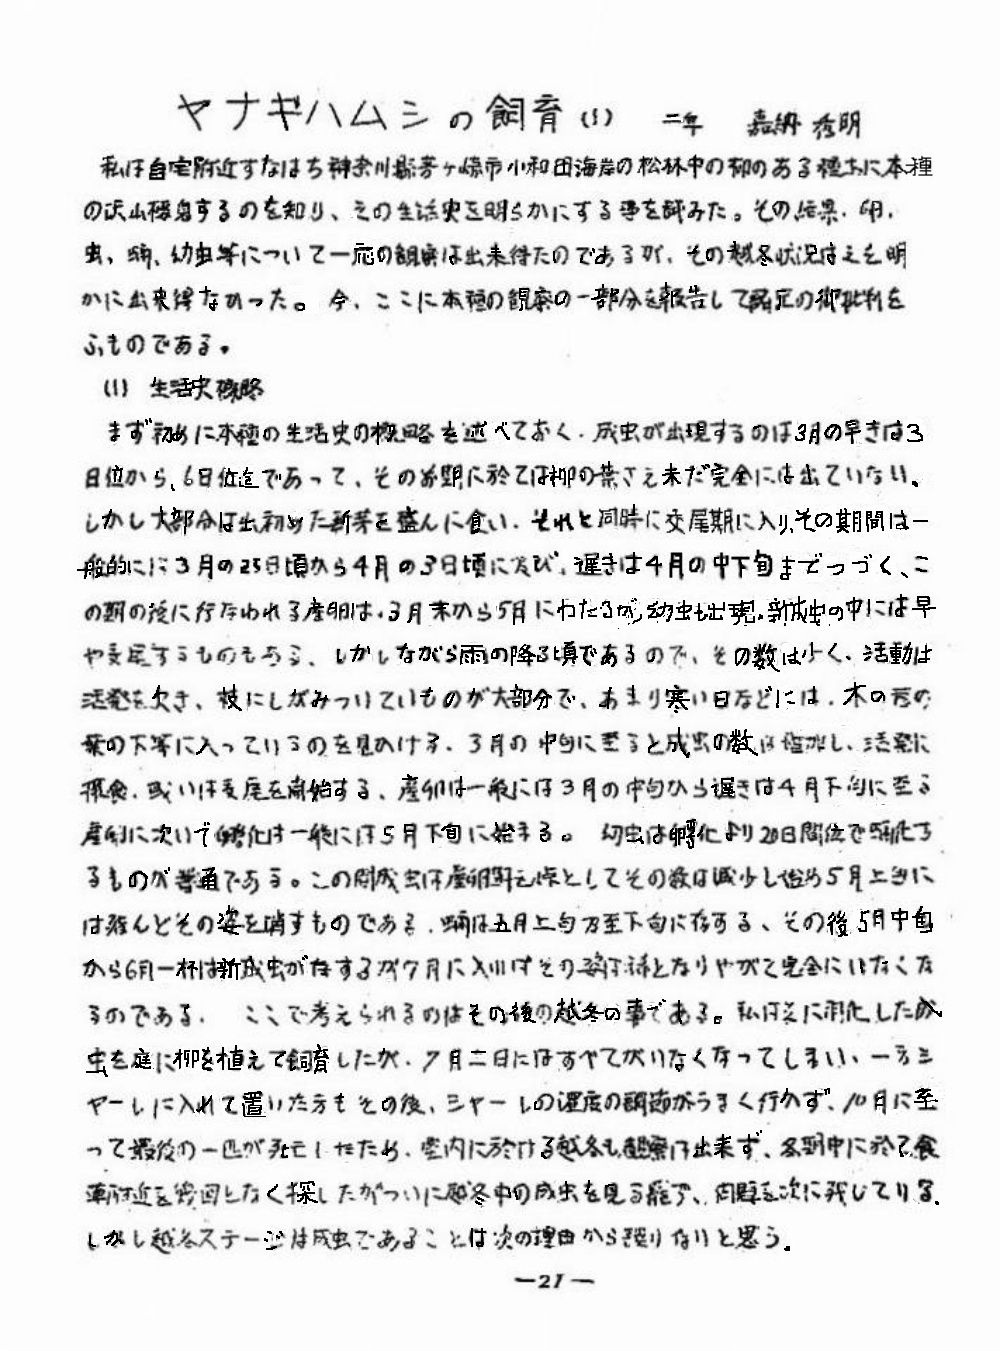 ヤナギハムシの飼育(1) 二年 嘉納 秀明
私は自宅附近すなはち神奈川縣茅ヶ崎市小和田海岸の松林中の柳のある種類に本種
の沢山棲息するのを知り、その生活史を明らかにする事を試みた。その結果、卵、
虫、蛹、幼虫等について一応の観察は出来得たのであるが、その越冬状況はえを明
かに出来得なかった。今、ここに本種の観察の一部分を報告して諸兄の御批判を
ふものである。
(1) 生活史概略
まず初めに本種の生活史の概略を述べておく。成虫が出現するのは3月の早きは3
日位から、6日位迄であって、その時期に於ては柳の葉さえ未だ完全には出ていない。
しかし大部分は出初めた新芽を盛んに食い、それと同時に交尾期に入り、その期間は一
般的には3月の25日頃から4月の3日頃に及び、遅きは4月の中下旬までつづく、こ
の期の後に行なわれる産卵は、3月末から5月にわたるが、幼虫も出現。新成虫の中には早
や交尾するものもある、しかしながら雨の降る頃であるので、その数は少く、活動は
活発を欠き、枝にしがみついているものが大部分で、あまり寒い日などには、木の
葉の下等に入っているのを見かける、3月の中旬に至ると成虫の数は増加し、活発に
摂食、或いは交尾を開始する、産卵は一般には3月の中旬から遅きは4月下旬に至る
産卵に次いで孵化は一般には5月下旬に始まる。 幼虫は孵化より20日間位で蛹化す
るものが普通である。この間成虫は産卵期を点としてその数は減少し始め5月上旬に
は殆んどその姿を消すものである、蛹は五月上旬乃至下旬に存する、その後5月中旬
から6月一杯は新成虫が存するが7月に入ればその姿は稀となりやがて完全にいなくな
るのである、 ここで考えられるのはその後の越冬の事である。私は羽化した成
虫を庭に柳を植えて飼育したが、7月二日にはすべてがいなくなってしまい、一方シ
ャーレに入れて置いた方もその後、シャーレの湿度の調節がうまく行かず、10月に至
って最後の一匹が死亡したため、室内に於ける越冬も観察は出来ず、冬期中に於て食
草附近を幾回となく探したがついに越冬中の成虫を見る能ず、問題を次に残している。
しかし越冬ステージは成虫であることは次の理由から誤りないと思う。
—21—